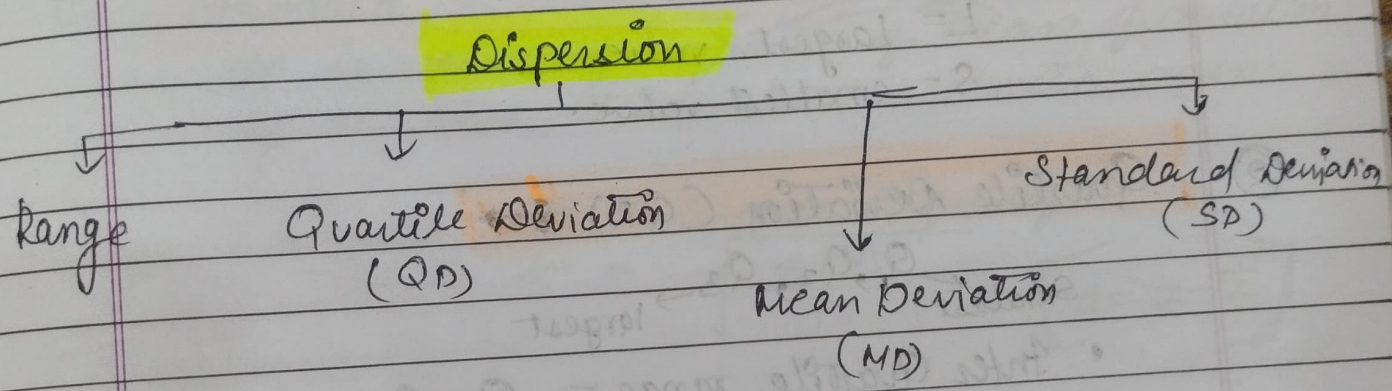 Dispersion
Range
Quartile Deviation
(QD)
Mean Deviation
(MD)
Standard Deviation
(SD)